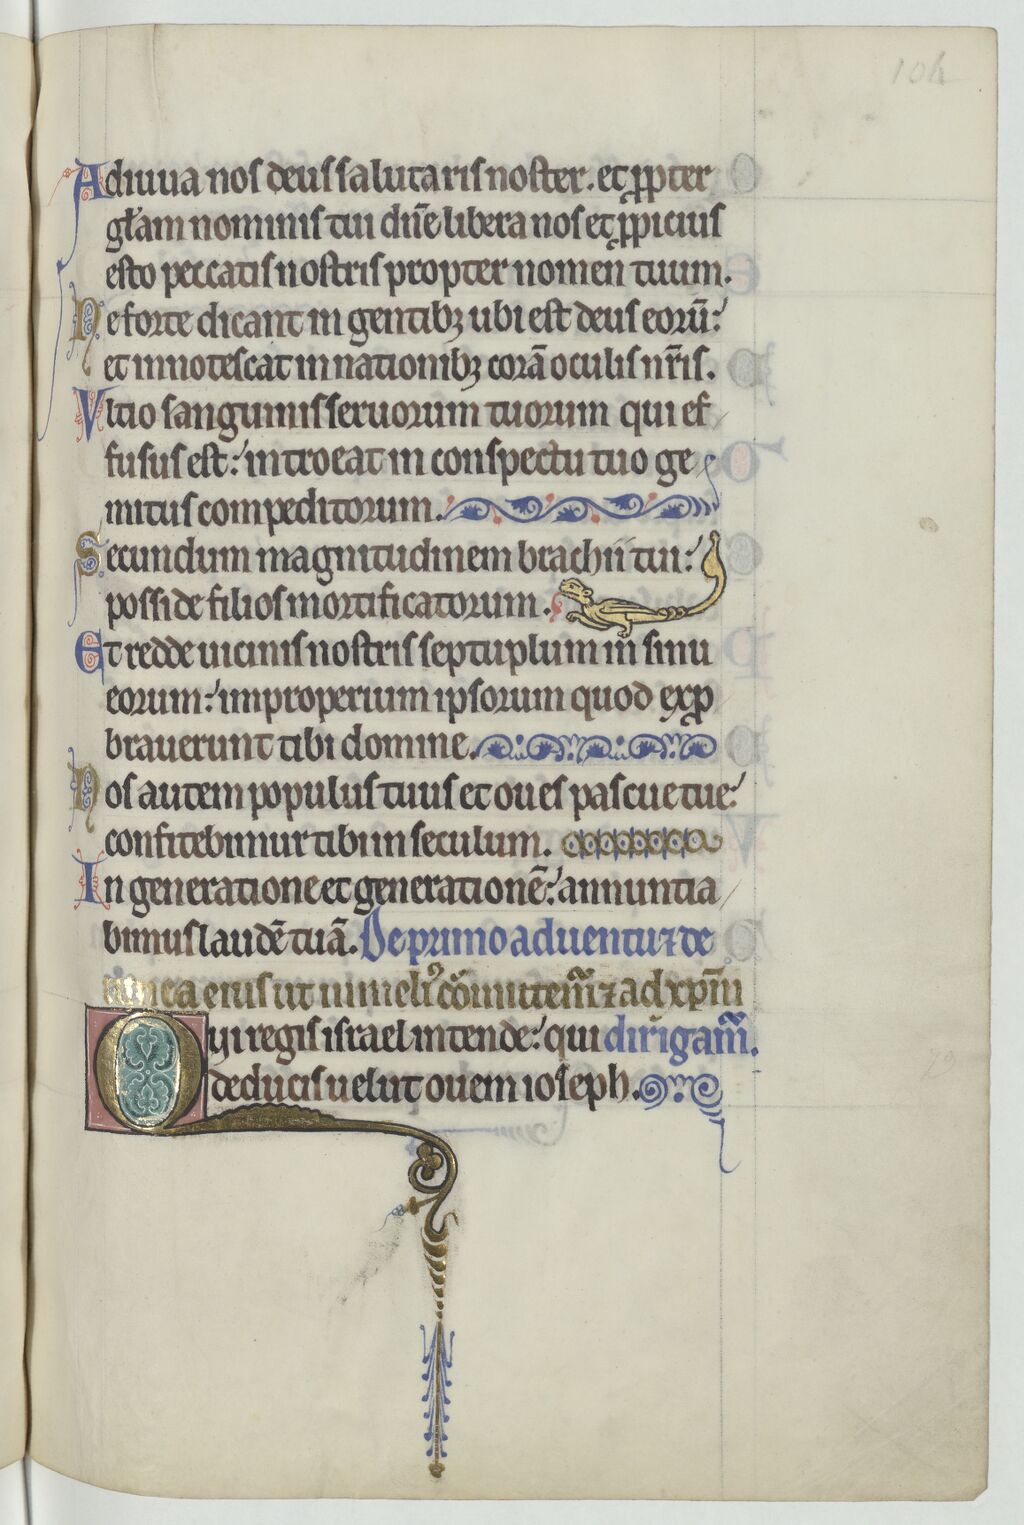 104
Adiuua nos deus salutaris noster. et ꝓpter
gl̃am nominis tui dñe libera nos et ꝓpicius
esto peccatis nostris propter nomen tuum.
Ne forte dicant in gentibꝫ ubi est deus eorũ:
et innotescat in nationibꝫ corã oculis nr̃is.
Vltio sanguinis seruorum tuorum qui ef
fusus est: introeat in conspectu tuo ge
mitus compeditorum.
Secundum magnitudinem brachii tui:
posside filios mortificatorum.
Et redde uicinis nostris septuplum in sinu
eorum: improperium ipsorum quod exꝓ
brauerunt tibi domine.
Nos autem populus tuus et oues pascue tue:
confitebimur tibi in seculum.
In generatione et generationẽ: annuntia
bimus laudẽ tuã. De primo aduentu ⁊ de
eius ut in meliꝰ ⁊ ad xp̃m
Qui regis israel intende: qui dirigam̃.
deducis uelut ouem ioseph.